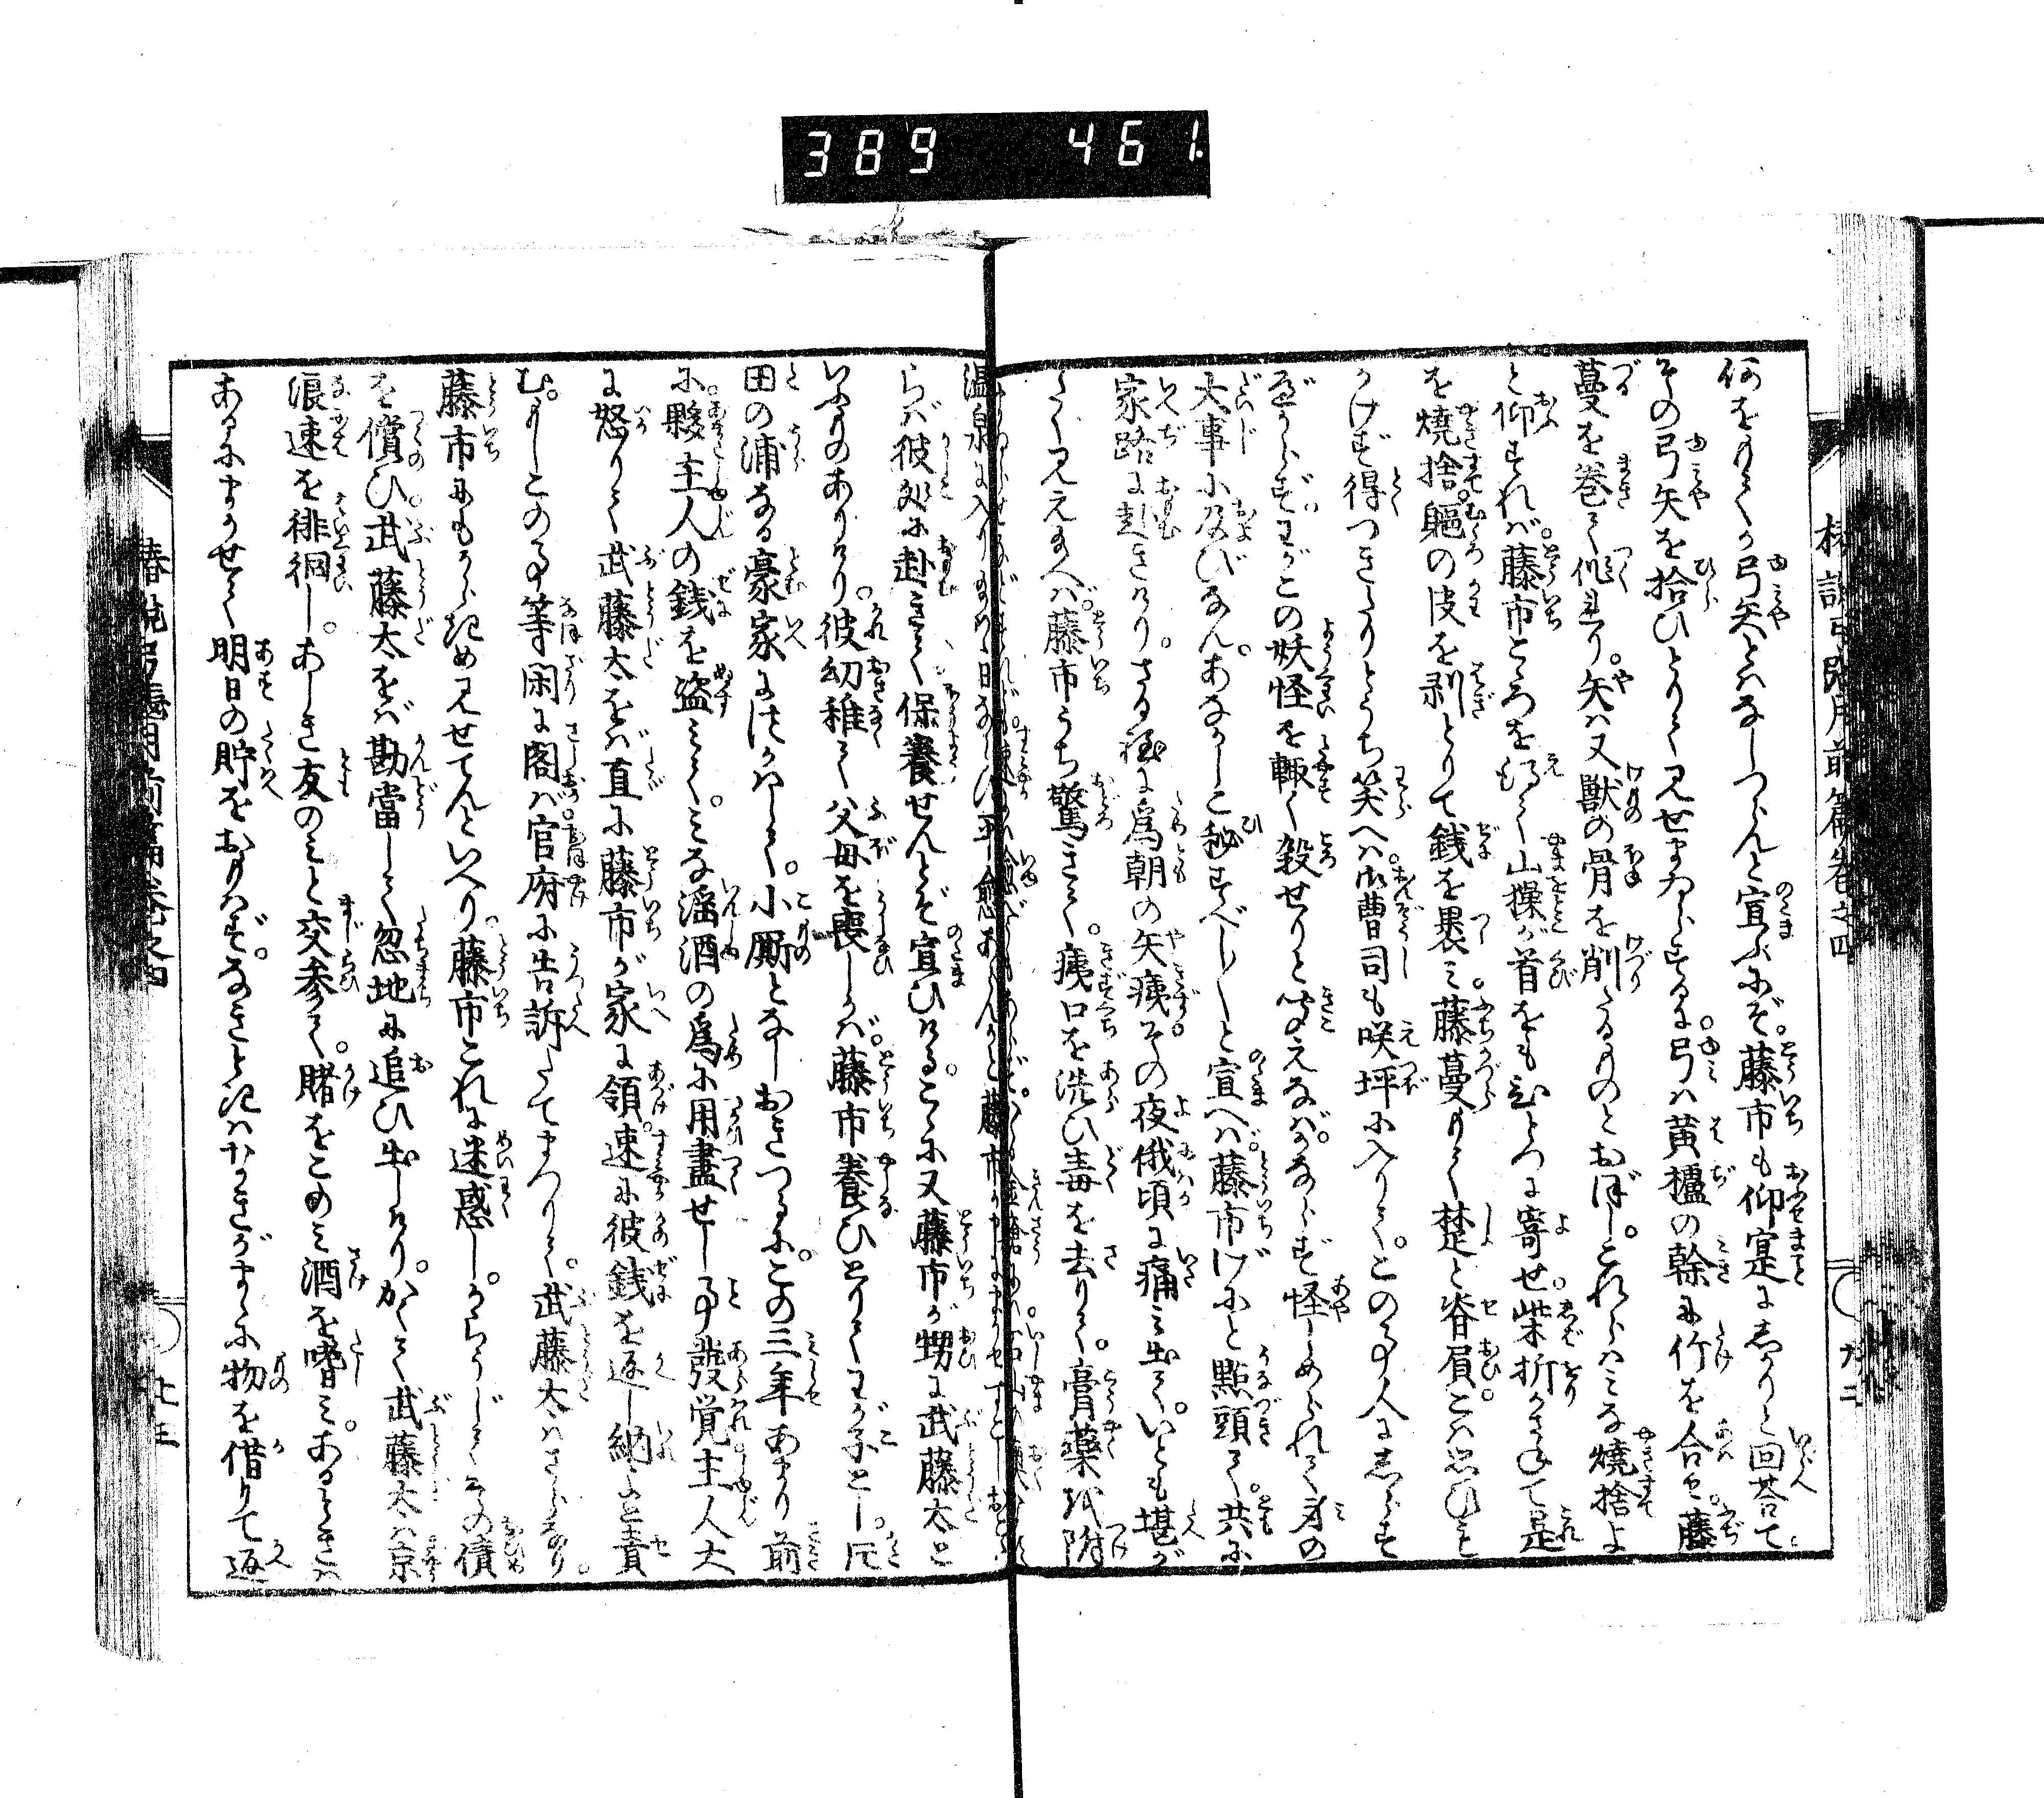 389 461
何をもてか弓矢とはなしつらんと宣ふにぞ。藤市も仰寔にしかりと回荅て
その弓矢を拾ひとりて見せまゐらするに。弓は黄櫨の幹に竹を合せ。藤
蔓を巻て作れり。矢は又獣の骨を削たるものとおぼし。これらはみな燒捨よ
と仰すれば。藤市こゝろを得て山㺐が首をもひとつに寄せ。柴折かさねて是
を燒捨。軀の皮を剥とりて銭を褁み。藤蔓もて楚と脊屓こは思ひも
かけず得つきたりとうち笑へは。御曹司も咲坪に入りて。この事人にしらす
べからず。わがこの妖怪を輙く殺せりと聞えなば。かならず怪しめられて身の
大事に及びなん。あなかしこ秘すべし〳〵と宣へば。藤市げにと點頭て。共に
家路に赴きけり。さる程に爲朝の矢痍。その夜俄頃に痛み出て。いとも堪が
たく見え給へば。藤市うち驚きて。痍口を洗ひ毒を去りて。膏藥を附
らば彼処に赴きて。保養せんとぞ宣ひける。こゝに又藤市が甥に武藤太と
いふものありけり。彼幼稚て父母を喪しかば。藤市養ひとりてわが子とし。
田の浦なる豪家につかはして。小厮となしおきつるに。この三年あまり前
に。夥主人の銭を盗みて。みな滛酒の爲に用盡せし事發覚。主人大
に怒りて武藤太をば直に藤市が家に領。速に彼銭を返し納よと責
む。もしこの事等閑に閣ば。官府に告訴たてまつりて。武藤太はさらなり。
藤市にもからきめ見せてんといへり。藤市これに迷惑し。からうじてその債
を償ひ。武藤太をば勘當して忽地に追ひ出しけり。かくて武藤太は京
浪速を徘徊し。あしき友のみと交参て。賭をこのみ酒を嗜み。あるときは
あるにまかせて明日の貯をおもはず。なきときはなきがまゝに物を借りて返
椿説弓張月前篇巻之四